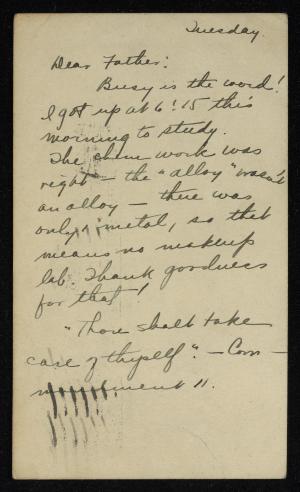 Tuesday.
Dear Father:
Busy is the word!
I got up at 6:15 this
morning to study.
The chem work was
right — the "alloy" wasn't
an alloy — there was
only 1 metal, so that
means no makeup
lab. Thank goodness
for that!
"Thou shalt take
care of thyself". — Com-
mandment 11.